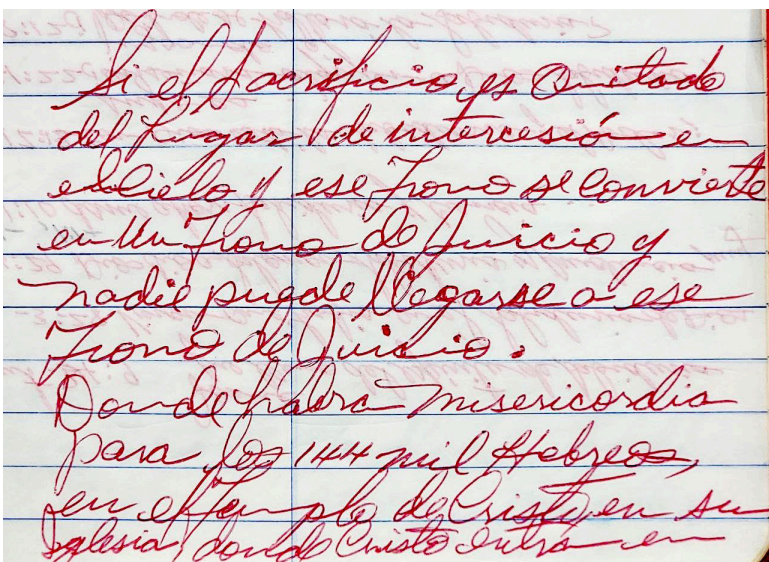 Si el Sacrificio, es Quitado
del Lugar de intercesión en
el Cielo y ese Trono se Convierte
en Un Trono de Juicio y
nadie puede llegarse a ese
Trono de Juicio.
Donde habra Misericordia
para los 144 mil Hebreos,
en el Templo de Cristo, en su
Iglesia, donde Cristo entra en